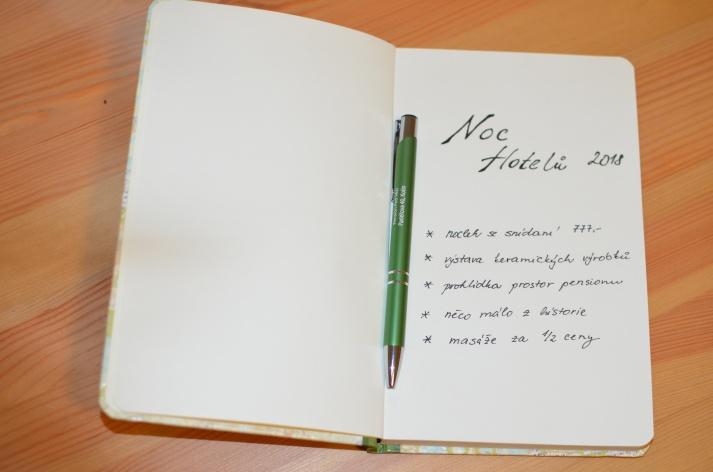 Noc
Hotelů 2018
* nocleh se snídaní 777.-
* výstava keramických výrobků
* prohlídka prostor pensionu
* něco málo z historie
* masáže za 1/2 ceny